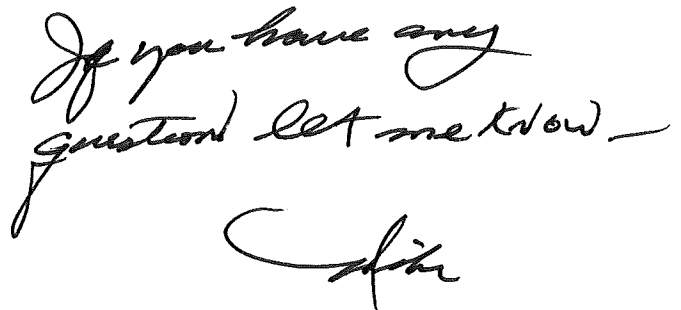 If you have any
question let me know —
Mike